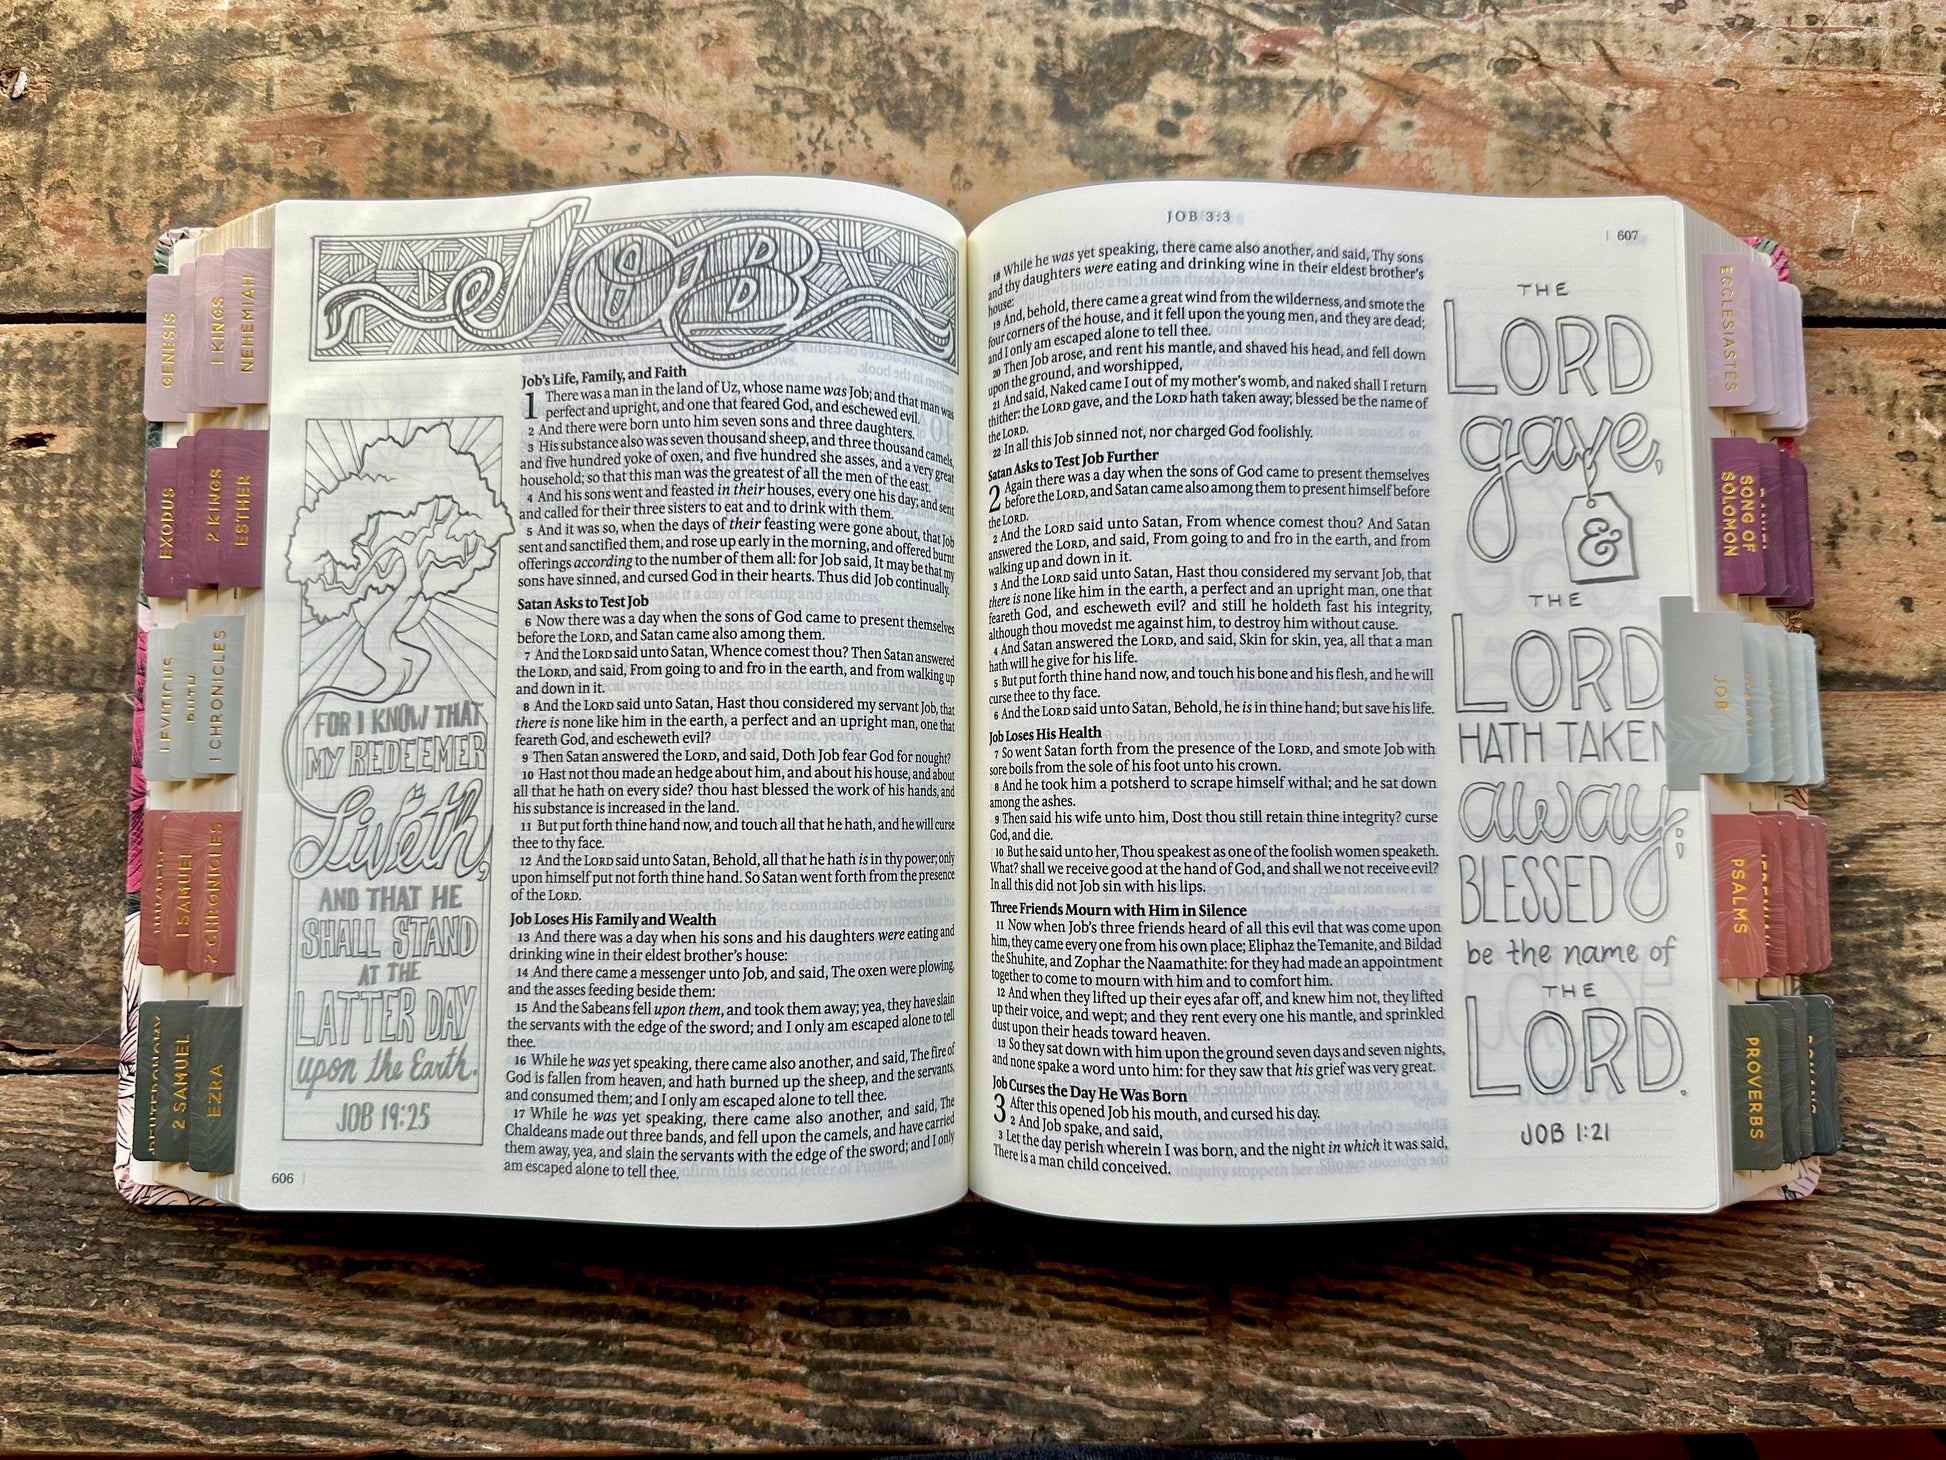 JOB
Job's Life, Family, and Faith
1 There was a man in the land of Uz, whose name was Job; and that man was
perfect and upright, and one that feared God, and eschewed evil.
2 And there were born unto him seven sons and three daughters.
3 His substance also was seven thousand sheep, and three thousand camels,
and five hundred yoke of oxen, and five hundred she asses, and a very great
household; so that this man was the greatest of all the men of the east.
4 And his sons went and feasted in their houses, every one his day; and sent
and called for their three sisters to eat and to drink with them.
5 And it was so, when the days of their feasting were gone about, that Job
sent and sanctified them, and rose up early in the morning, and offered burnt
offerings according to the number of them all: for Job said, It may be that my
sons have sinned, and cursed God in their hearts. Thus did Job continually.
Satan Asks to Test Job
6 Now there was a day when the sons of God came to present themselves
before the LORD, and Satan came also among them.
7 And the LORD said unto Satan, Whence comest thou? Then Satan answered
the LORD, and said, From going to and fro in the earth, and from walking up
and down in it.
8 And the LORD said unto Satan, Hast thou considered my servant Job, that
there is none like him in the earth, a perfect and an upright man, one that
feareth God, and escheweth evil?
9 Then Satan answered the LORD, and said, Doth Job fear God for nought?
10 Hast not thou made an hedge about him, and about his house, and about
all that he hath on every side? thou hast blessed the work of his hands, and
his substance is increased in the land.
11 But put forth thine hand now, and touch all that he hath, and he will curse
thee to thy face.
12 And the LORD said unto Satan, Behold, all that he hath is in thy power; only
upon himself put not forth thine hand. So Satan went forth from the presence
of the LORD.
Job Loses His Family and Wealth
13 And there was a day when his sons and his daughters were eating and
drinking wine in their eldest brother's house:
14 And there came a messenger unto Job, and said, The oxen were plowing,
and the asses feeding beside them:
15 And the Sabeans fell upon them, and took them away; yea, they have slain
the servants with the edge of the sword; and I only am escaped alone to tell
thee.
16 While he was yet speaking, there came also another, and said, The fire of
God is fallen from heaven, and hath burned up the sheep, and the servants,
and consumed them; and I only am escaped alone to tell thee.
17 While he was yet speaking, there came also another, and said, The
Chaldeans made out three bands, and fell upon the camels, and have carried
them away, yea, and slain the servants with the edge of the sword; and I only
am escaped alone to tell thee.
FOR I KNOW THAT
MY REDEEMER
Liveth,
AND THAT HE
SHALL STAND
AT THE
LATTER DAY
upon the Earth.
JOB 19:25
606
JOB 3:3
607
18 While he was yet speaking, there came also another, and said, Thy sons
and thy daughters were eating and drinking wine in their eldest brother's
house:
19 And, behold, there came a great wind from the wilderness, and smote the
four corners of the house, and it fell upon the young men, and they are dead;
and I only am escaped alone to tell thee.
20 Then Job arose, and rent his mantle, and shaved his head, and fell down
upon the ground, and worshipped,
21 And said, Naked came I out of my mother's womb, and naked shall I return
thither: the LORD gave, and the LORD hath taken away; blessed be the name of
the LORD.
22 In all this Job sinned not, nor charged God foolishly.
Satan Asks to Test Job Further
2 Again there was a day when the sons of God came to present themselves
before the LORD, and Satan came also among them to present himself before
the LORD.
2 And the LORD said unto Satan, From whence comest thou? And Satan
answered the LORD, and said, From going to and fro in the earth, and from
walking up and down in it.
3 And the LORD said unto Satan, Hast thou considered my servant Job, that
there is none like him in the earth, a perfect and an upright man, one that
feareth God, and escheweth evil? and still he holdeth fast his integrity,
although thou movedst me against him, to destroy him without cause.
4 And Satan answered the LORD, and said, Skin for skin, yea, all that a man
hath will he give for his life.
5 But put forth thine hand now, and touch his bone and his flesh, and he will
curse thee to thy face.
6 And the LORD said unto Satan, Behold, he is in thine hand; but save his life.
Job Loses His Health
7 So went Satan forth from the presence of the LORD, and smote Job with
sore boils from the sole of his foot unto his crown.
8 And he took him a potsherd to scrape himself withal; and he sat down
among the ashes.
9 Then said his wife unto him, Dost thou still retain thine integrity? curse
God, and die.
10 But he said unto her, Thou speakest as one of the foolish women speaketh.
What? shall we receive good at the hand of God, and shall we not receive evil?
In all this did not Job sin with his lips.
Three Friends Mourn with Him in Silence
11 Now when Job's three friends heard of all this evil that was come upon
him, they came every one from his own place; Eliphaz the Temanite, and Bildad
the Shuhite, and Zophar the Naamathite: for they had made an appointment
together to come to mourn with him and to comfort him.
12 And when they lifted up their eyes afar off, and knew him not, they lifted
up their voice, and wept; and they rent every one his mantle, and sprinkled
dust upon their heads toward heaven.
13 So they sat down with him upon the ground seven days and seven nights,
and none spake a word unto him: for they saw that his grief was very great.
Job Curses the Day He Was Born
3 After this opened Job his mouth, and cursed his day.
2 And Job spake, and said,
3 Let the day perish wherein I was born, and the night in which it was said,
There is a man child conceived.
THE
LORD
gave,
&
THE
LORD
HATH TAKEN
away;
BLESSED
be the name of
THE
LORD.
JOB 1:21
GENESIS
1 KINGS
NEHEMIAH
EXODUS
2 KINGS
ESTHER
LEVITICUS
RUTH
1 CHRONICLES
1 SAMUEL
2 CHRONICLES
2 SAMUEL
EZRA
ECCLESIASTES
SONG OF
SOLOMON
JOB
PSALMS
PROVERBS